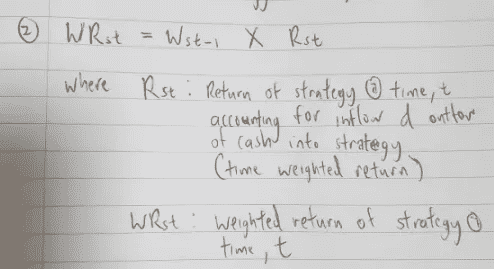 ② WRst = Wst-1 X Rst
where Rst : Return of strategy @ time, t
accounting for inflow & outflow
of cash into strategy
(time weighted return)
WRst : weighted return of strategy @
time, t